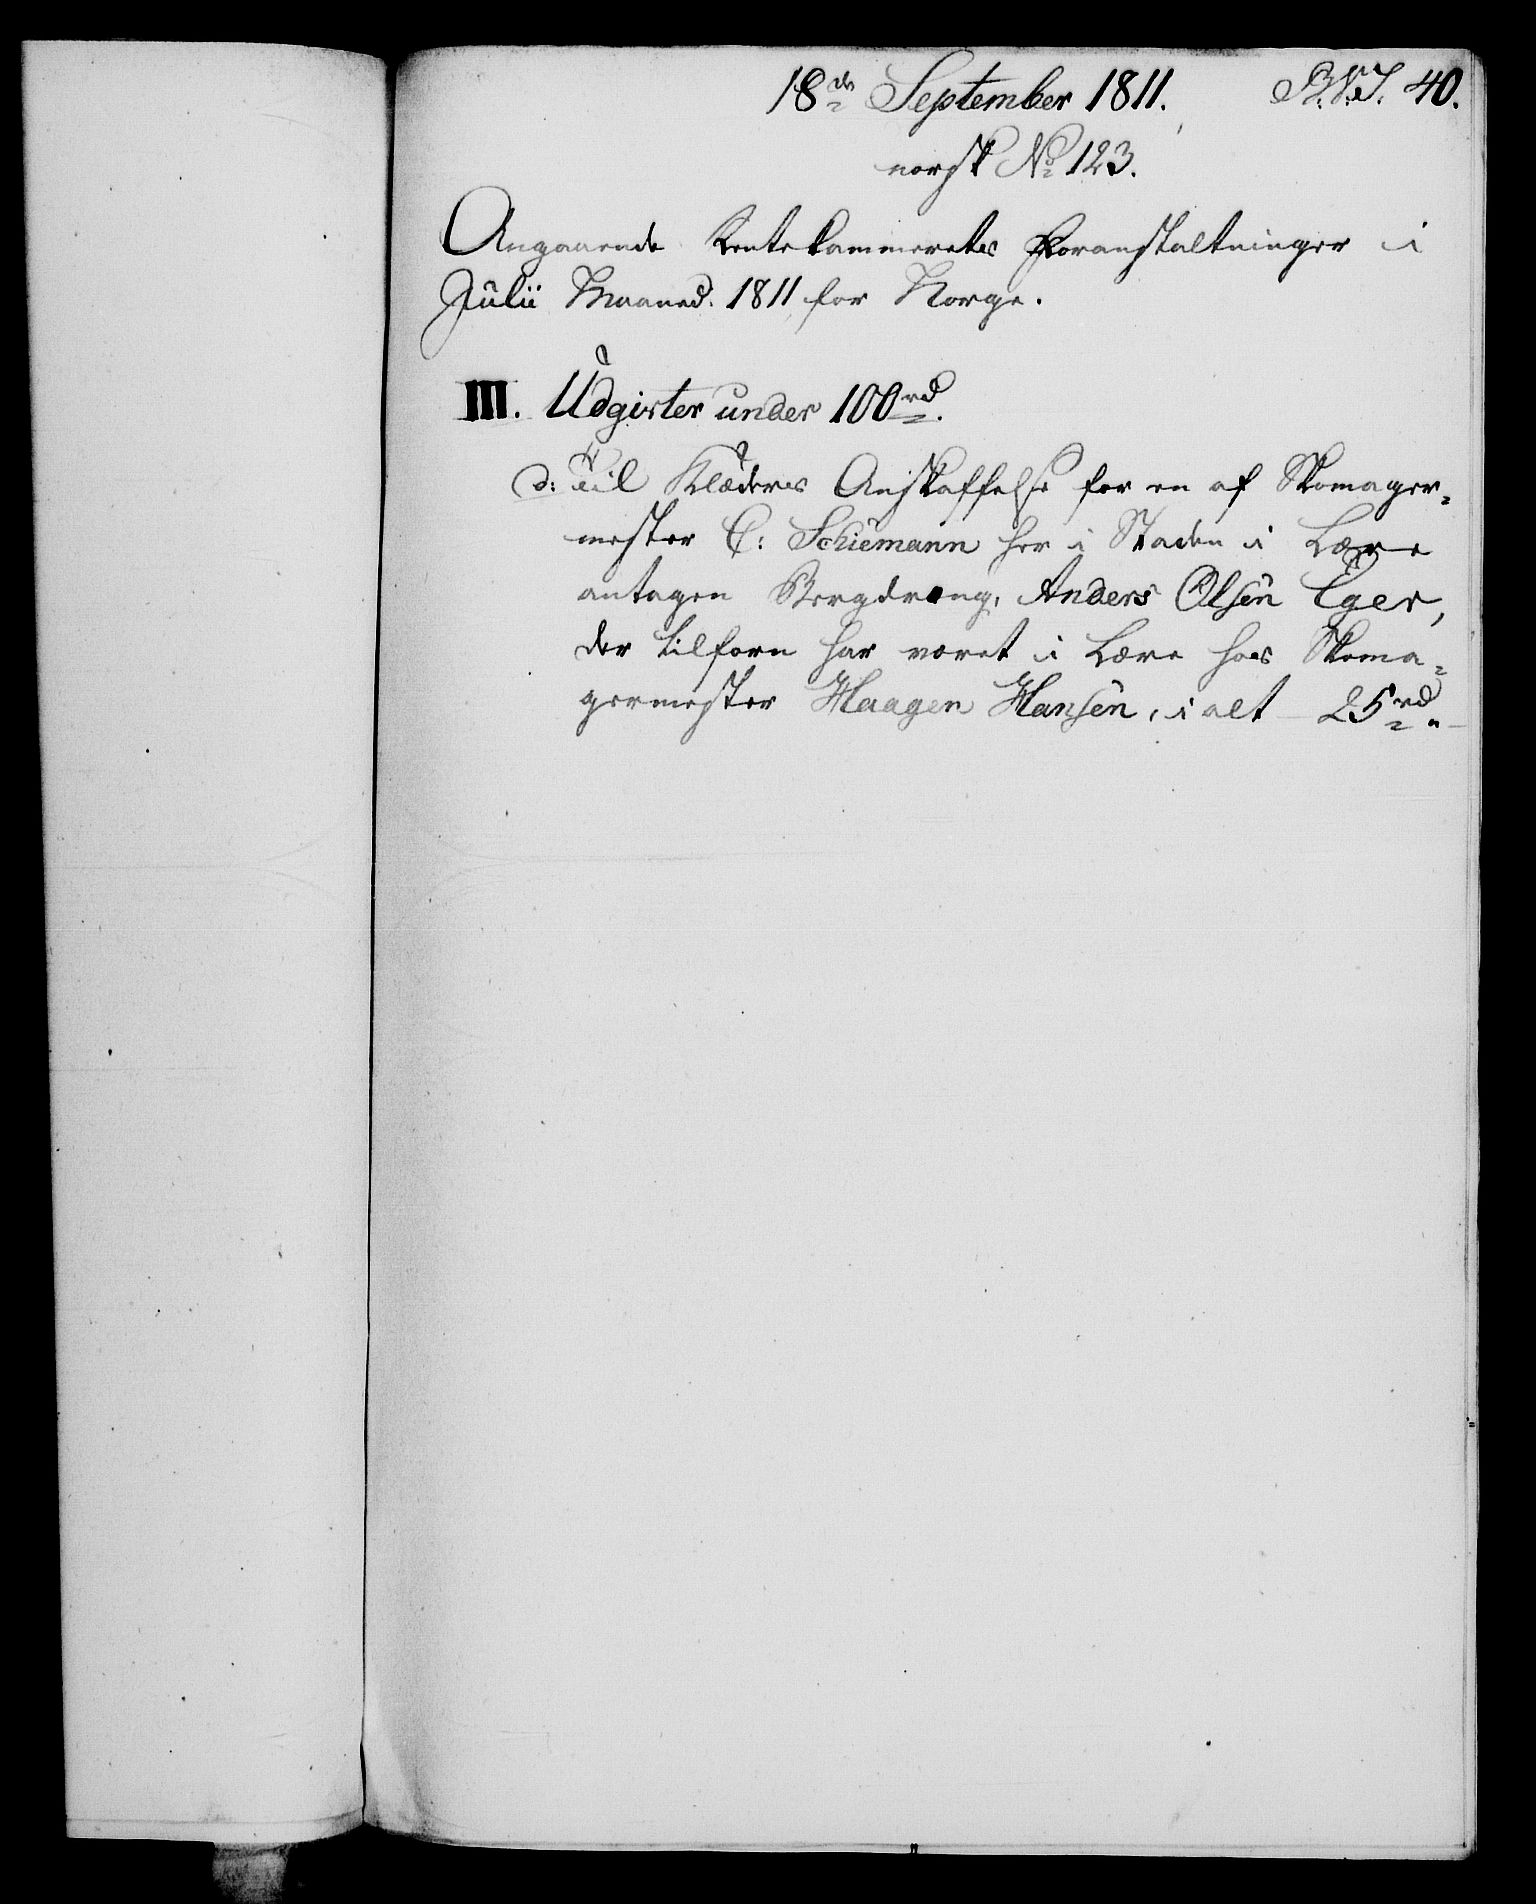 18de September 1811. B:V:J: 40.
norsk No 123.
Angaaende Rentekammerets Foranstaltninger i
Julii Maaned. 1811 for Norge.
III. Udgivter under 100rd.
d: til Klæders Anskaffelse for en af Skomager=
mester C: Schiemann her i Staden i Lære
antagen Bergdreng, Anders Olsen Eger,
der tilforn har været i Lære hos Skoma=
germester Haagen Hansen, i alt - 25rd „ -